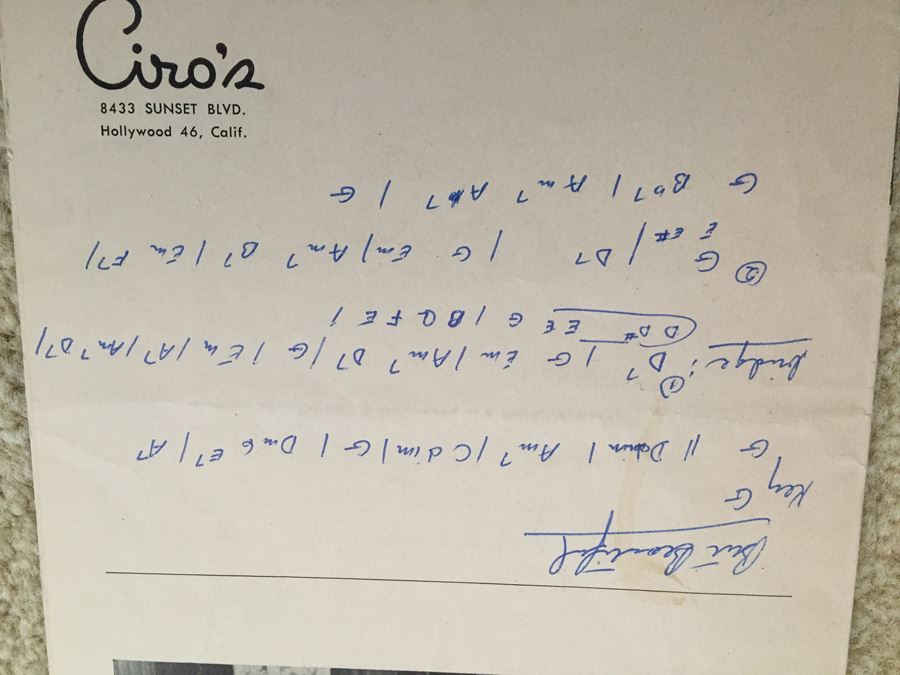 Ciro's
8433 SUNSET BLVD.
Hollywood 46, Calif.
But Beautiful
Key G
G || Ddim | Am7 | Cdim | G | Dm6 E7 | A7
bridge: ① D7 | G Em | Am7 D7 | G | Em | A7 | Am7 D7 |
D D# E E G | B Q F E |
② G E E# | D7 | G Em | Am7 B7 | Em F7 |
G Bb7 | Am7 Ab7 | G